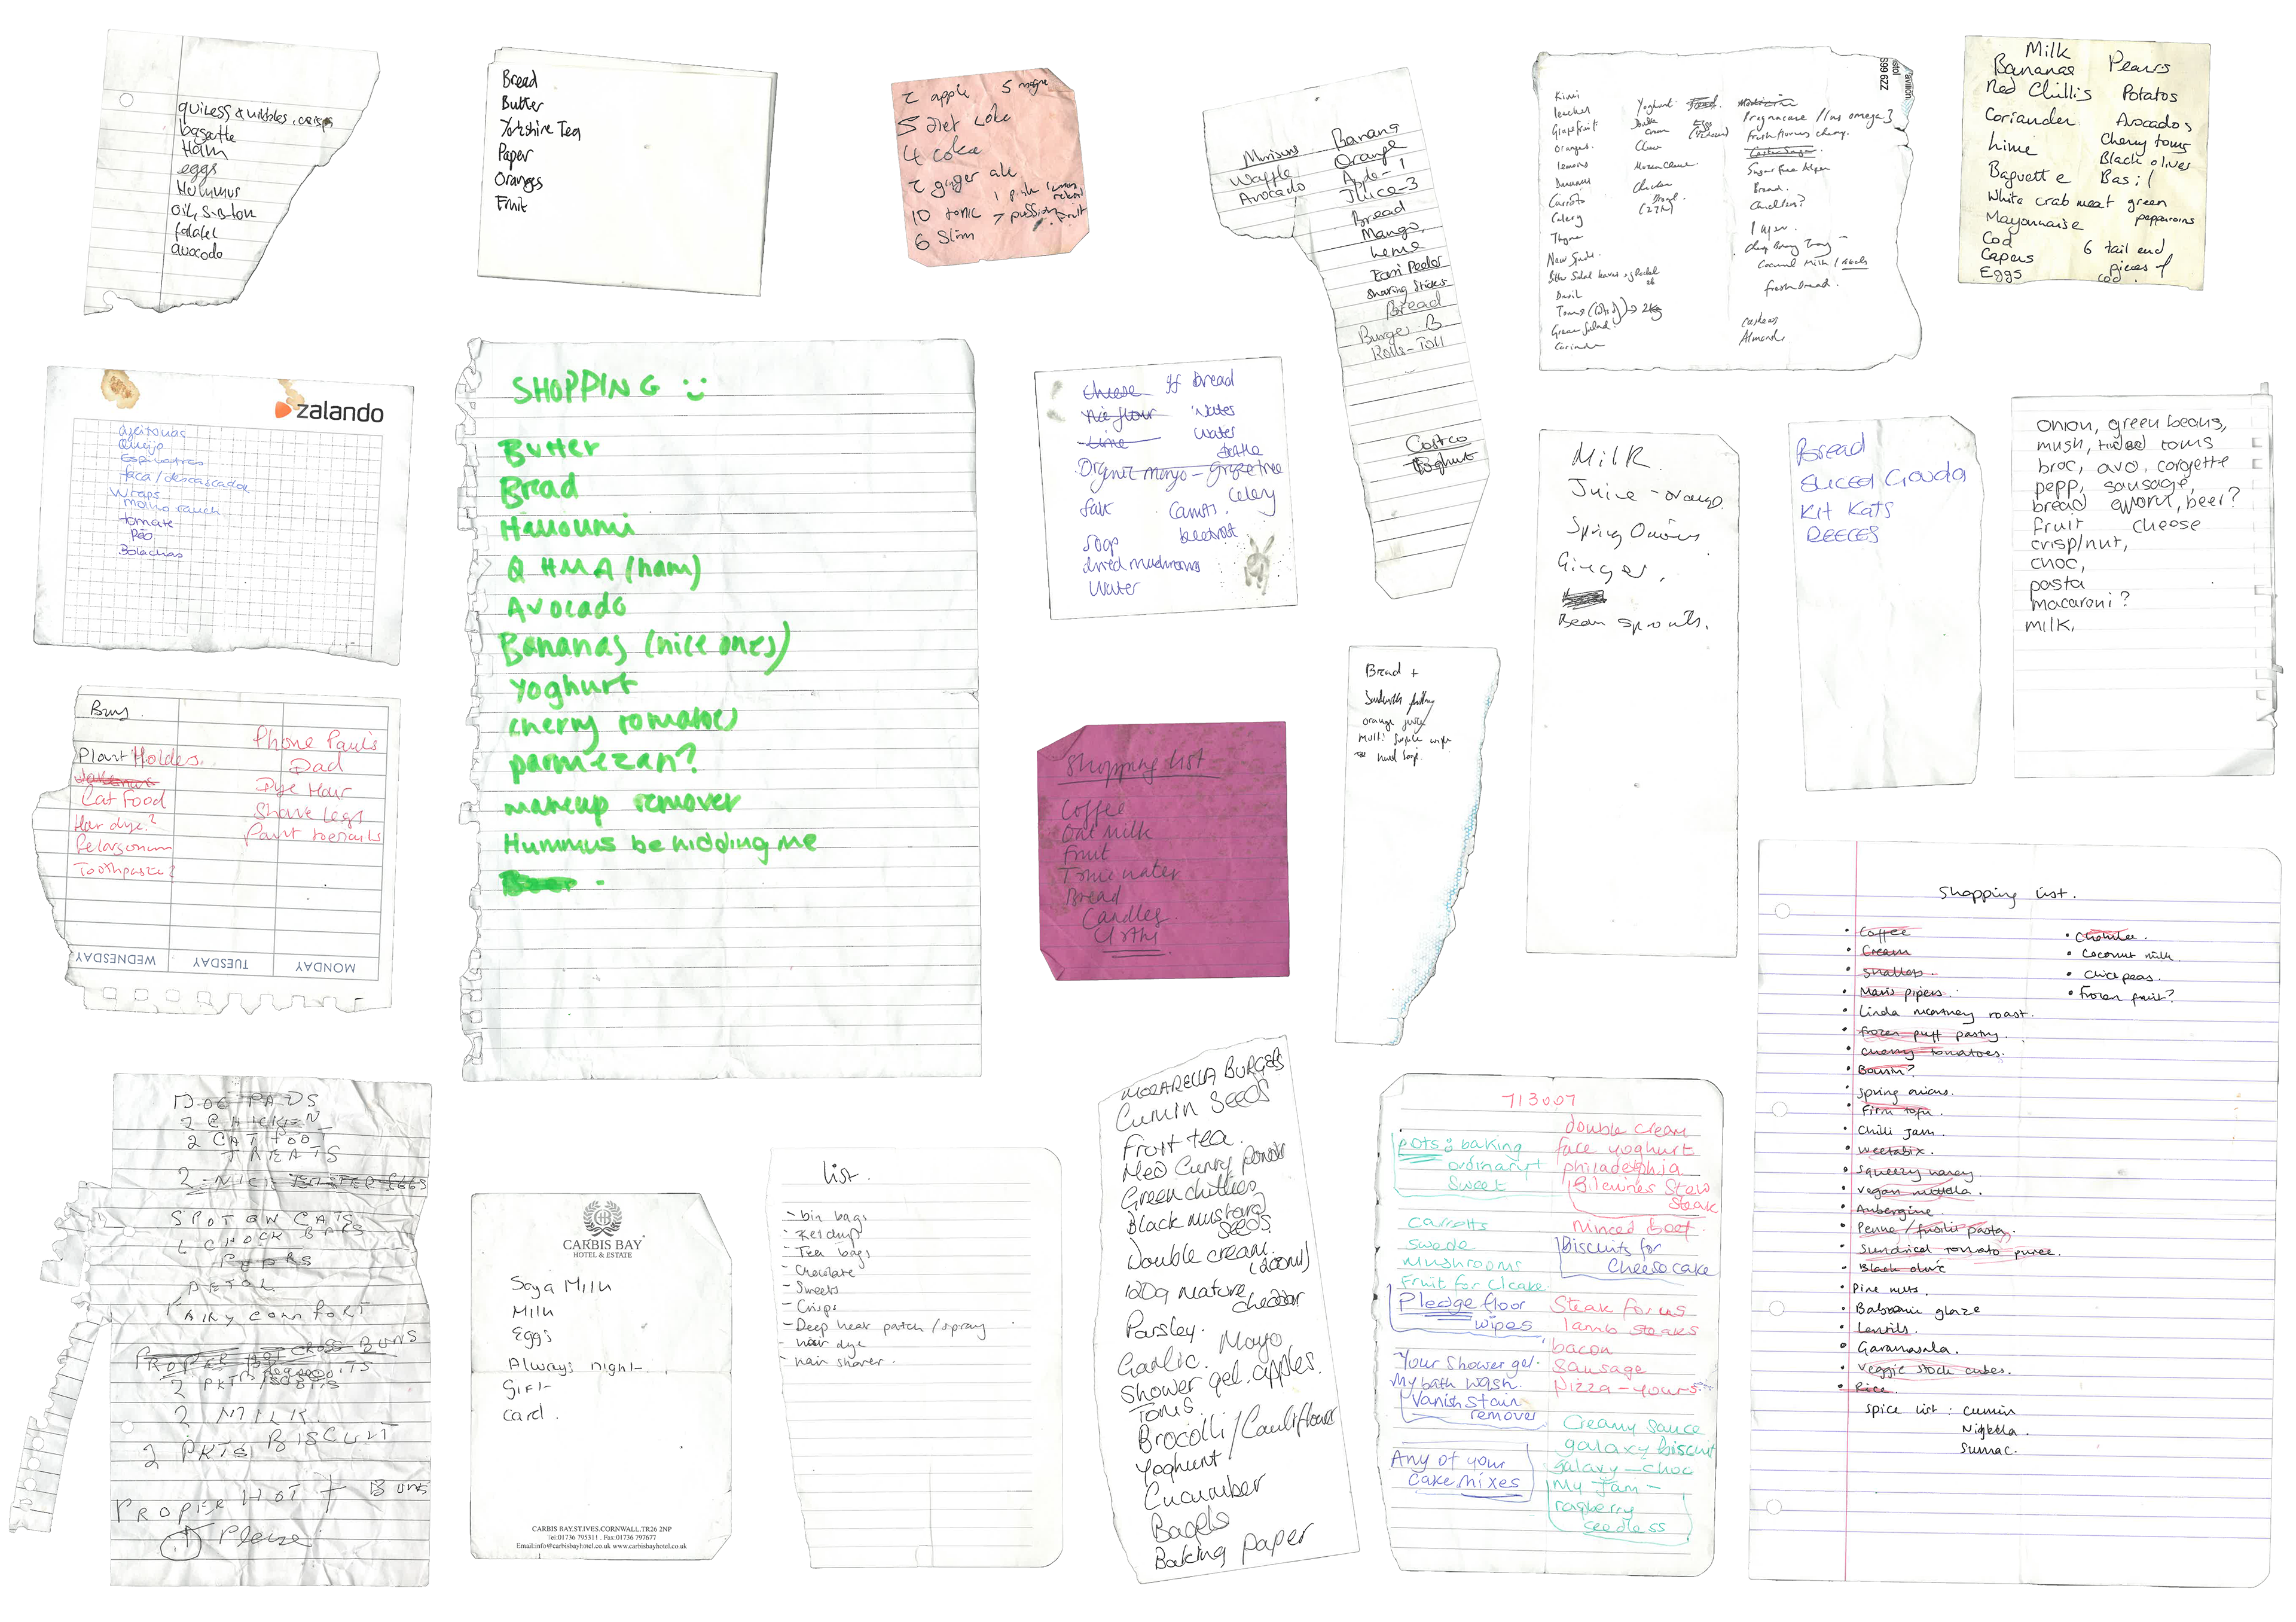 bagatte
Ham
eggs
Hummus
falafel
avocado
Bread
Butter
Yorkshire Tea
Paper
Oranges
Fruit
2 apple
5 diet coke
4 coke
2 ginger ale
10 tonic
6 Slim
Waffle
Avocado
Banana
Orange
Apple-1
Juice-3
Bread
Mango
Easi Peeler
Sharing Sticks
Bread
Burger B
Rolls-Toll
Costco
Yoghurt
S99 6ZZ
Kiwi
Grapefruit
Oranges
lemons
Carrots
Celery
Thyme
Basil
Coriander
Yoghurt
Chicken
Bread.
Candles?
fresh bread.
Cashews
Almonds
Milk
Bananas
Red Chillis
Coriander
Lime
Baguette
White crab meat
Mayonnaise
Cod
Capers
Eggs
Pears
Potatos
Avocados
Cherry toms
Black olives
Basil
green
pepparoins
6 tail end
pieces of
cod.
zalando
azeitonas
Queijo
Espinafres
faca/descascador
Wraps
Molho ranch
tomate
Pão
Bolachas
SHOPPING
Butter
Bread
Halloumi
Q HMA (ham)
Avocado
Bananas (nice ones)
Yoghurt
cherry tomatoes
parmezan?
makeup remover
Hummus be kidding me
cheese
rice flour
Lime
salt
soap
dried mushrooms
Water
gf bread
Water
Water
Celery
Carrots.
beetroot
Milk.
Juice - orange.
Spring Onions
Ginger,
Bean sprouts.
Bread
SLICED Gouda
Kit Kats
REECES
onion, green beans,
mush, toms
broc, avo, corgette
pepp, sausage,
bread beer?
fruit cheese
crisp/nut,
choc,
pasta
macaroni?
milk,
Buy
Plant Holders.
Cat Food
Hair dye?
Pelargonium
Toothpaste?
Phone Paul's
Dad
Dye Hair
Shave legs
Paint toenails
WEDNESDAY
TUESDAY
MONDAY
Shopping list
Coffee
Oat Milk
Fruit
Tonic water
Bread
Candles
Bread +
Sandwich filling
orange juice
Multi surface wipe
hand soap.
Shopping List.
Coffee
Cream
Shallots.
Maris pipers.
Linda mcartney roast.
frozen puff pastry.
cherry tomatoes.
Boursin?
Spring onions.
Firm tofu.
Chilli Jam.
weetabix.
Squeezy honey
vegan nutella.
Aubergine.
Penne / fusilli pasta.
Sundried tomato puree.
Black olive
Pine nuts.
Balsamic glaze
Lentils.
Garamasala.
Veggie stock cubes.
Rice.
Spice list: cumin
Nigella.
Sumac.
Cholula.
Coconut milk.
Chickpeas.
Frozen fruit?
DOG PADS
2 CHICKEN
2 CAT FOOD
TREATS
SPOT ON CATS
DETOL
FAIRY COMFORT
2 MILK
2 PKTS BISCUIT
PROPER HOT + BUNS
Please
CARBIS BAY
HOTEL & ESTATE
Soya Milk
Milk
Eggs
Always night
Gift
Card.
CARBIS BAY.ST.IVES.CORNWALL.TR26 2NP
Tel:01736 795311 . Fax:01736 797677
Email:info@carbisbayhotel.co.uk www.carbisbayhotel.co.uk
List.
- bin bags
- Ketchup
- Tea bags
- Chocolate
- Sweets
- Crisps
- Deep heat patch / spray
- hair dye
- hair shaver.
MOZARELLA BURGERS
Cumin SEEDS
Fruit tea.
Med Curry powder
Green chillies
Black mustard
seeds.
Double cream.
(200ml)
120g mature
cheddar
Parsley.
Garlic. Mayo
Shower gel. apples.
Toms.
Brocolli/Cauliflower
Yoghunt
Cucumber
Bagels
Baking paper
713007
pots: baking
ordinary!
Sweet
carrotts
swede
mushrooms
Fruit for c/cake
Pledge floor
wipes
Your shower gel.
My bath wash.
Vanish stain
remover
Any of your
cake mixes
double cream
face yoghurt
philadelphia
Stew
steak
minced beef.
Biscuits for
Cheesecake
Steak for us
lamb steaks
bacon
Sausage
Pizza - yours
Creamy sauce
galaxy biscuit
galaxy - choc
My Jam -
raspberry
seedless